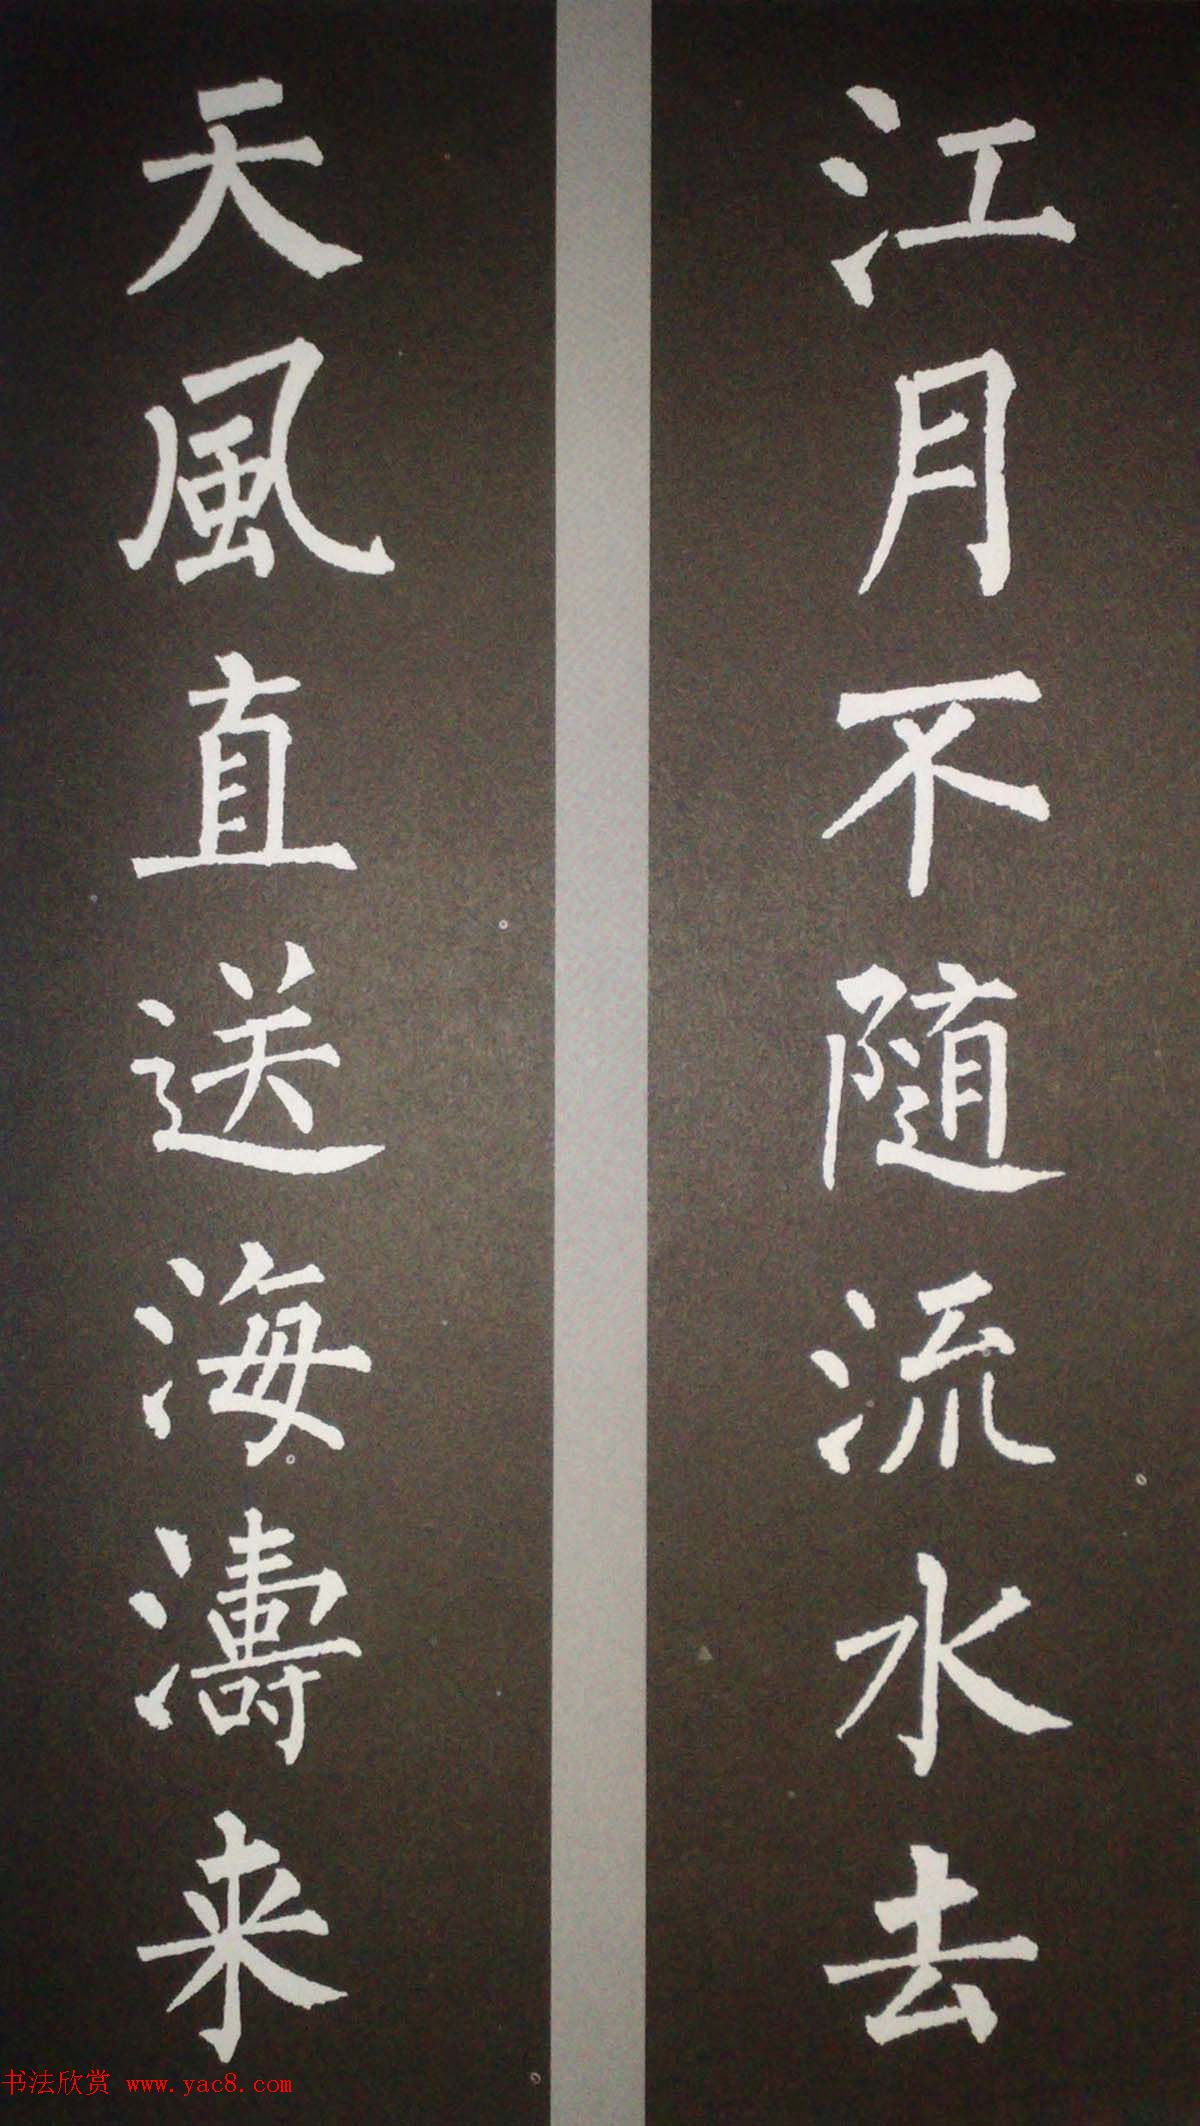 江月不隨流水去
天風直送海濤来
书法欣赏 www.yac8.com